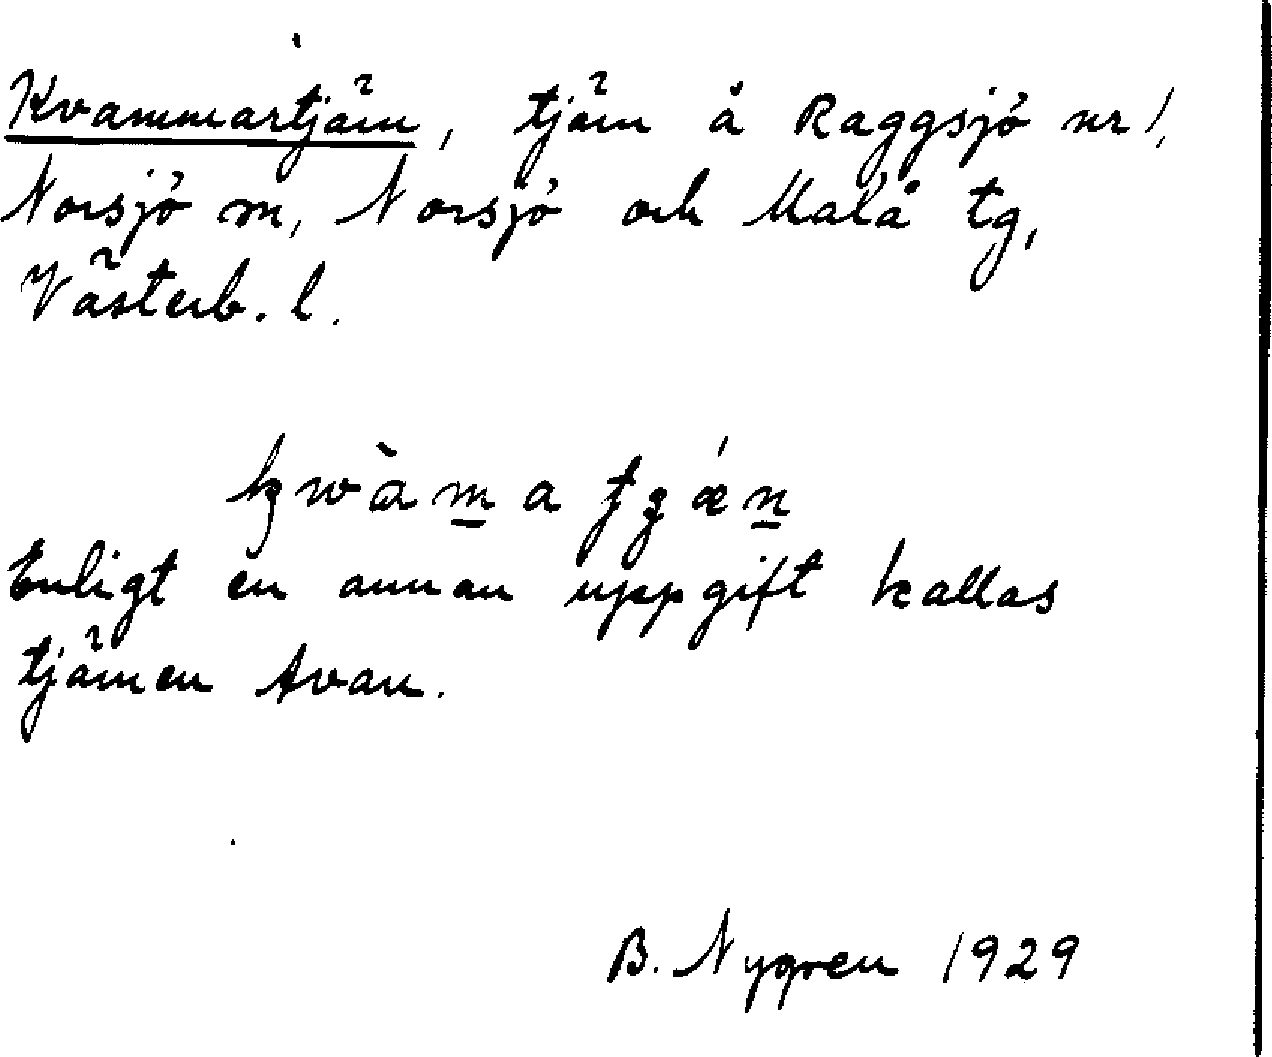 Kvammartjärn, tjärn å Raggsjö nr 1,
Norsjö sn, Norsjö och Malå tg,
Västerb. l.
kwàmatjǽn
Enligt en annan uppgift kallas
tjärnen Avan.
B. Nygren 1929